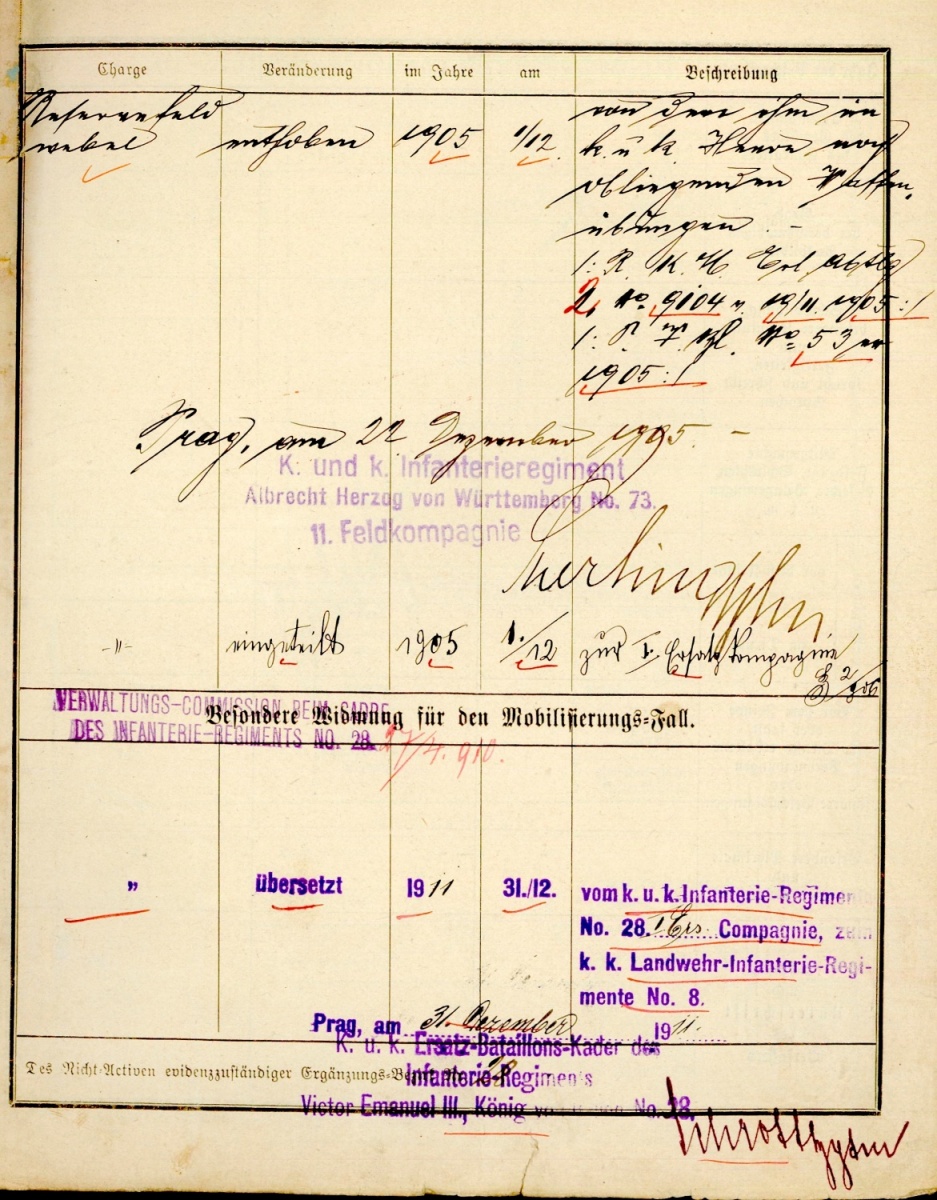 Charge Veränderung im Jahre am Beschreibung
Reservefeld
webel enthoben 1905 1/12.
von den ihm im
k. u. k. Heere noch
obliegenden Waffen,
übungen. –
/: R. K. M. Erl. Abtlg
2, No 9104 v. 19/11. 1905 :/
No 53 ex
1905 :/
Prag, am 22 Dezember 1905. –
K. und k. Infanterieregiment
Albrecht Herzog von Württemberg No. 73.
11. Feldkompagnie
-"- eingeteilt 1905 1./12 zur I. Ersatzkompagnie
VERWALTUNGS-COMMISSION BEIM CADRE
DES INFANTERIE-REGIMENTS NO. 28.
27/4. 910.
Besondere Widmung für den Mobilisierungs-Fall.
" übersetzt 1911 31./12. vom k. u. k. Infanterie-Regimen
No. 28. 1 Ers Compagnie, zum
k. k. Landwehr-Infanterie-Regi-
mente No. 8.
Prag, am 31. Dezember 1911.
K. u. k. Ersatz-Bataillons-Kader des
Des Nicht-Activen evidenzzuständiger Ergänzungs-Bezirk No. 28
Infanterie-Regiments
Victor Emanuel III., König von No. 28.